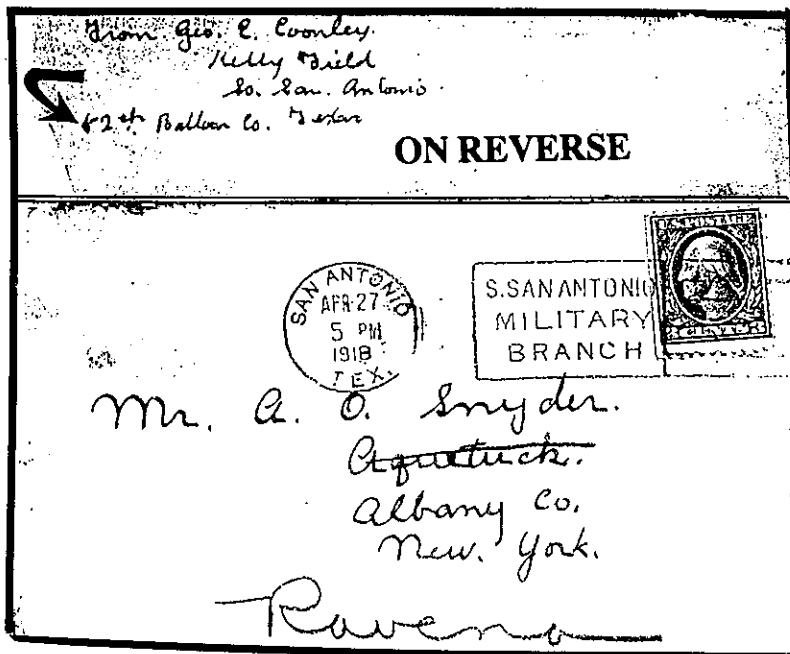 From Geo. E. Coonley.
Kelly Field
So. San. Antonio.
82nd Balloon Co. Texas
ON REVERSE
SAN ANTONIO
APR 27
5 PM
1918
TEX.
S. SAN ANTONIO
MILITARY
BRANCH
Mr. A. O. Snyder.
Aquetuck.
Albany Co.
New. York.
Ravena